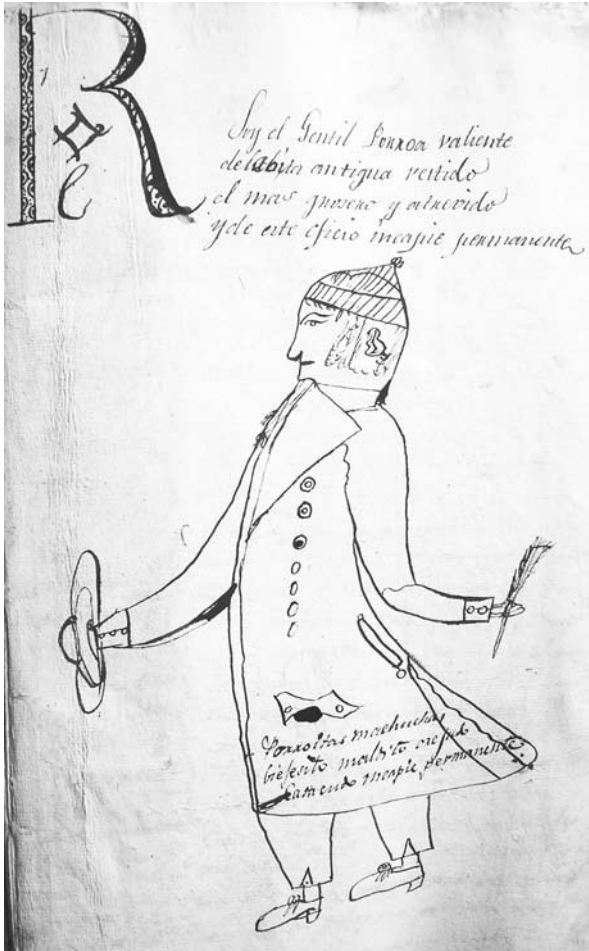 R
e
Soy el Gentil Porroa valiente
de antigua vestido
el mas grosero y atrevido
y de este oficio incapie permanente
Porroitas machucho
biejesito maldito
incapie permanente